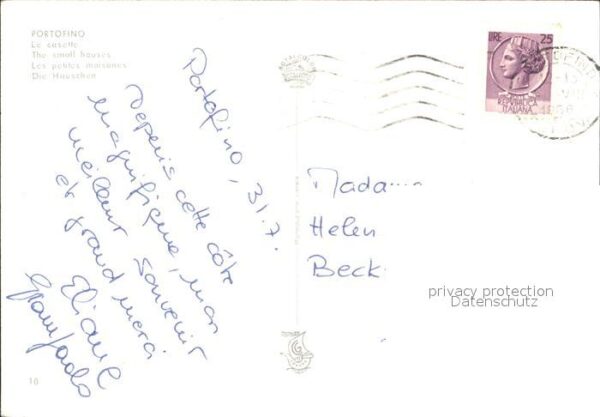 PORTOFINO
Le casette
The small houses
Les petites maisones
Die Hauschen
Portofino, 31.7.
Depuis cette côte
magnifique, mon
meilleur souvenir
et grand merci
Eliane
LIRE 25
REPVBBLICA
ITALIANA
Mada
Helen
Beck
privacy protection
Datenschutz
10